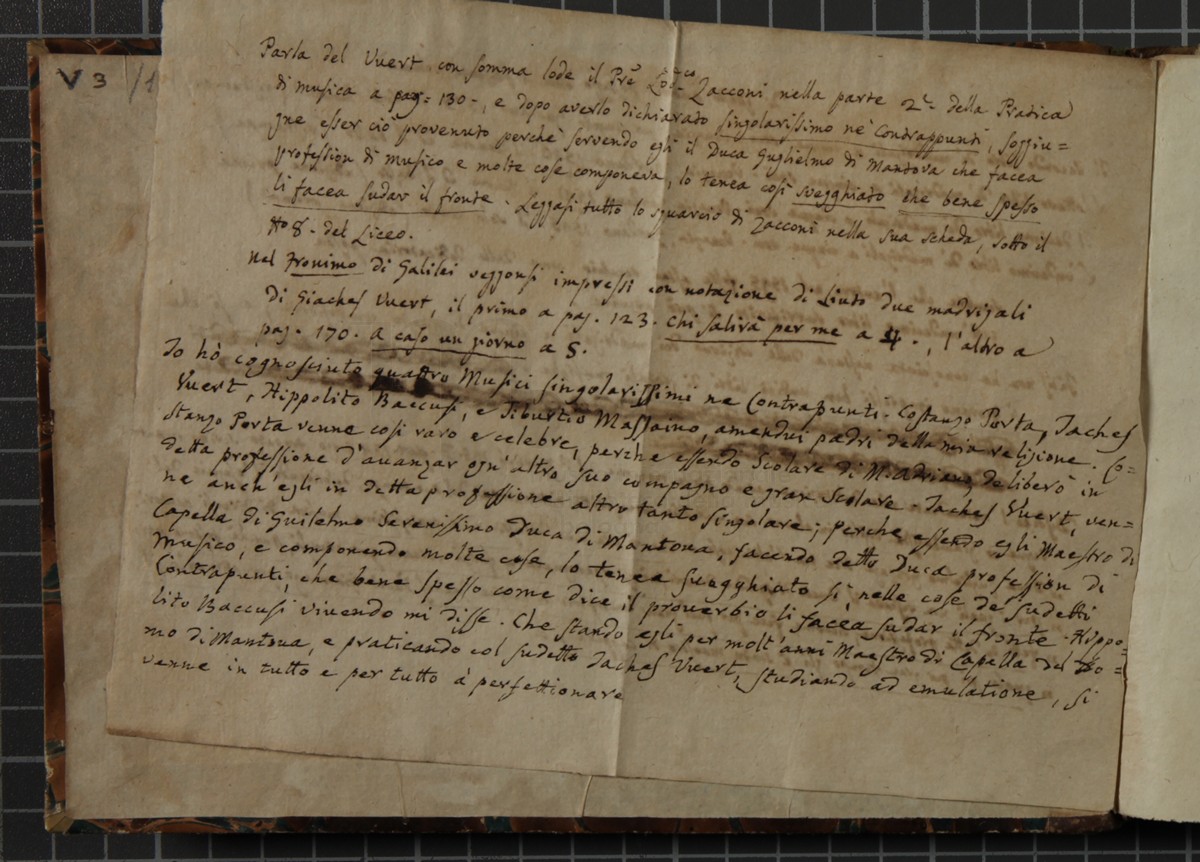 V 3 /1
Parla del Vuert con somma lode il Pre Lodco Zacconi nella parte 2a della Pratica
di musica a pag= 130-, e dopo averlo dichiarato singolarissimo ne' Contrappunti, soggiu=
gne esser ciò provenuto perchè servendo egli il Duca Guglielmo di Mantova che facea
profession di musico e molte cose componeva, lo tenea così svegghiato che bene spesso
li facea sudar il fronte. Leggasi tutto lo squarcio di Zacconi nella sua scheda, sotto il
No 8. del Liceo.
nel Fronimo di Galilei veggonsi impressi con notazione di Liuto due madrigali
di Giaches Vuert, il primo a pag. 123. Chi salirà per me a 4., l'altro a
pag. 170. A caso un giorno a 5.
Io hò cognosciuto quattro Musici singolarissimi ne Contrapunti. Costanzo Porta, Jaches
Vuert, Hippolito Baccusi, e Tiburtio Massaino, amendui padri della mia religione. Co=
stanzo Porta venne così raro e celebre, perche essendo Scolare di M. Adriano, deliberò in
detta professione d'auanzar ogn'altro suo compagno e gran scolare. Jaches Vuert, ven=
ne anch'egli in detta professione altro tanto singolare; perche essendo egli Maestro di
Capella di Guilelmo Serenissimo Duca di Mantoua, facendo detto Duca profession di
Musico, e componendo molte cose, lo tenea suegghiato sì, nelle cose de sudetti
Contrapunti, che bene spesso come dice il prouerbio li facea sudar il fronte. Hippo=
lito Baccusi viuendo mi disse. Che stando egli per molt'anni Maestro di Capella del Do=
mo di Mantoua, e praticando col sudetto Jaches Vuert, studiando ad emulatione, si
venne in tutto e per tutto à perfettionare